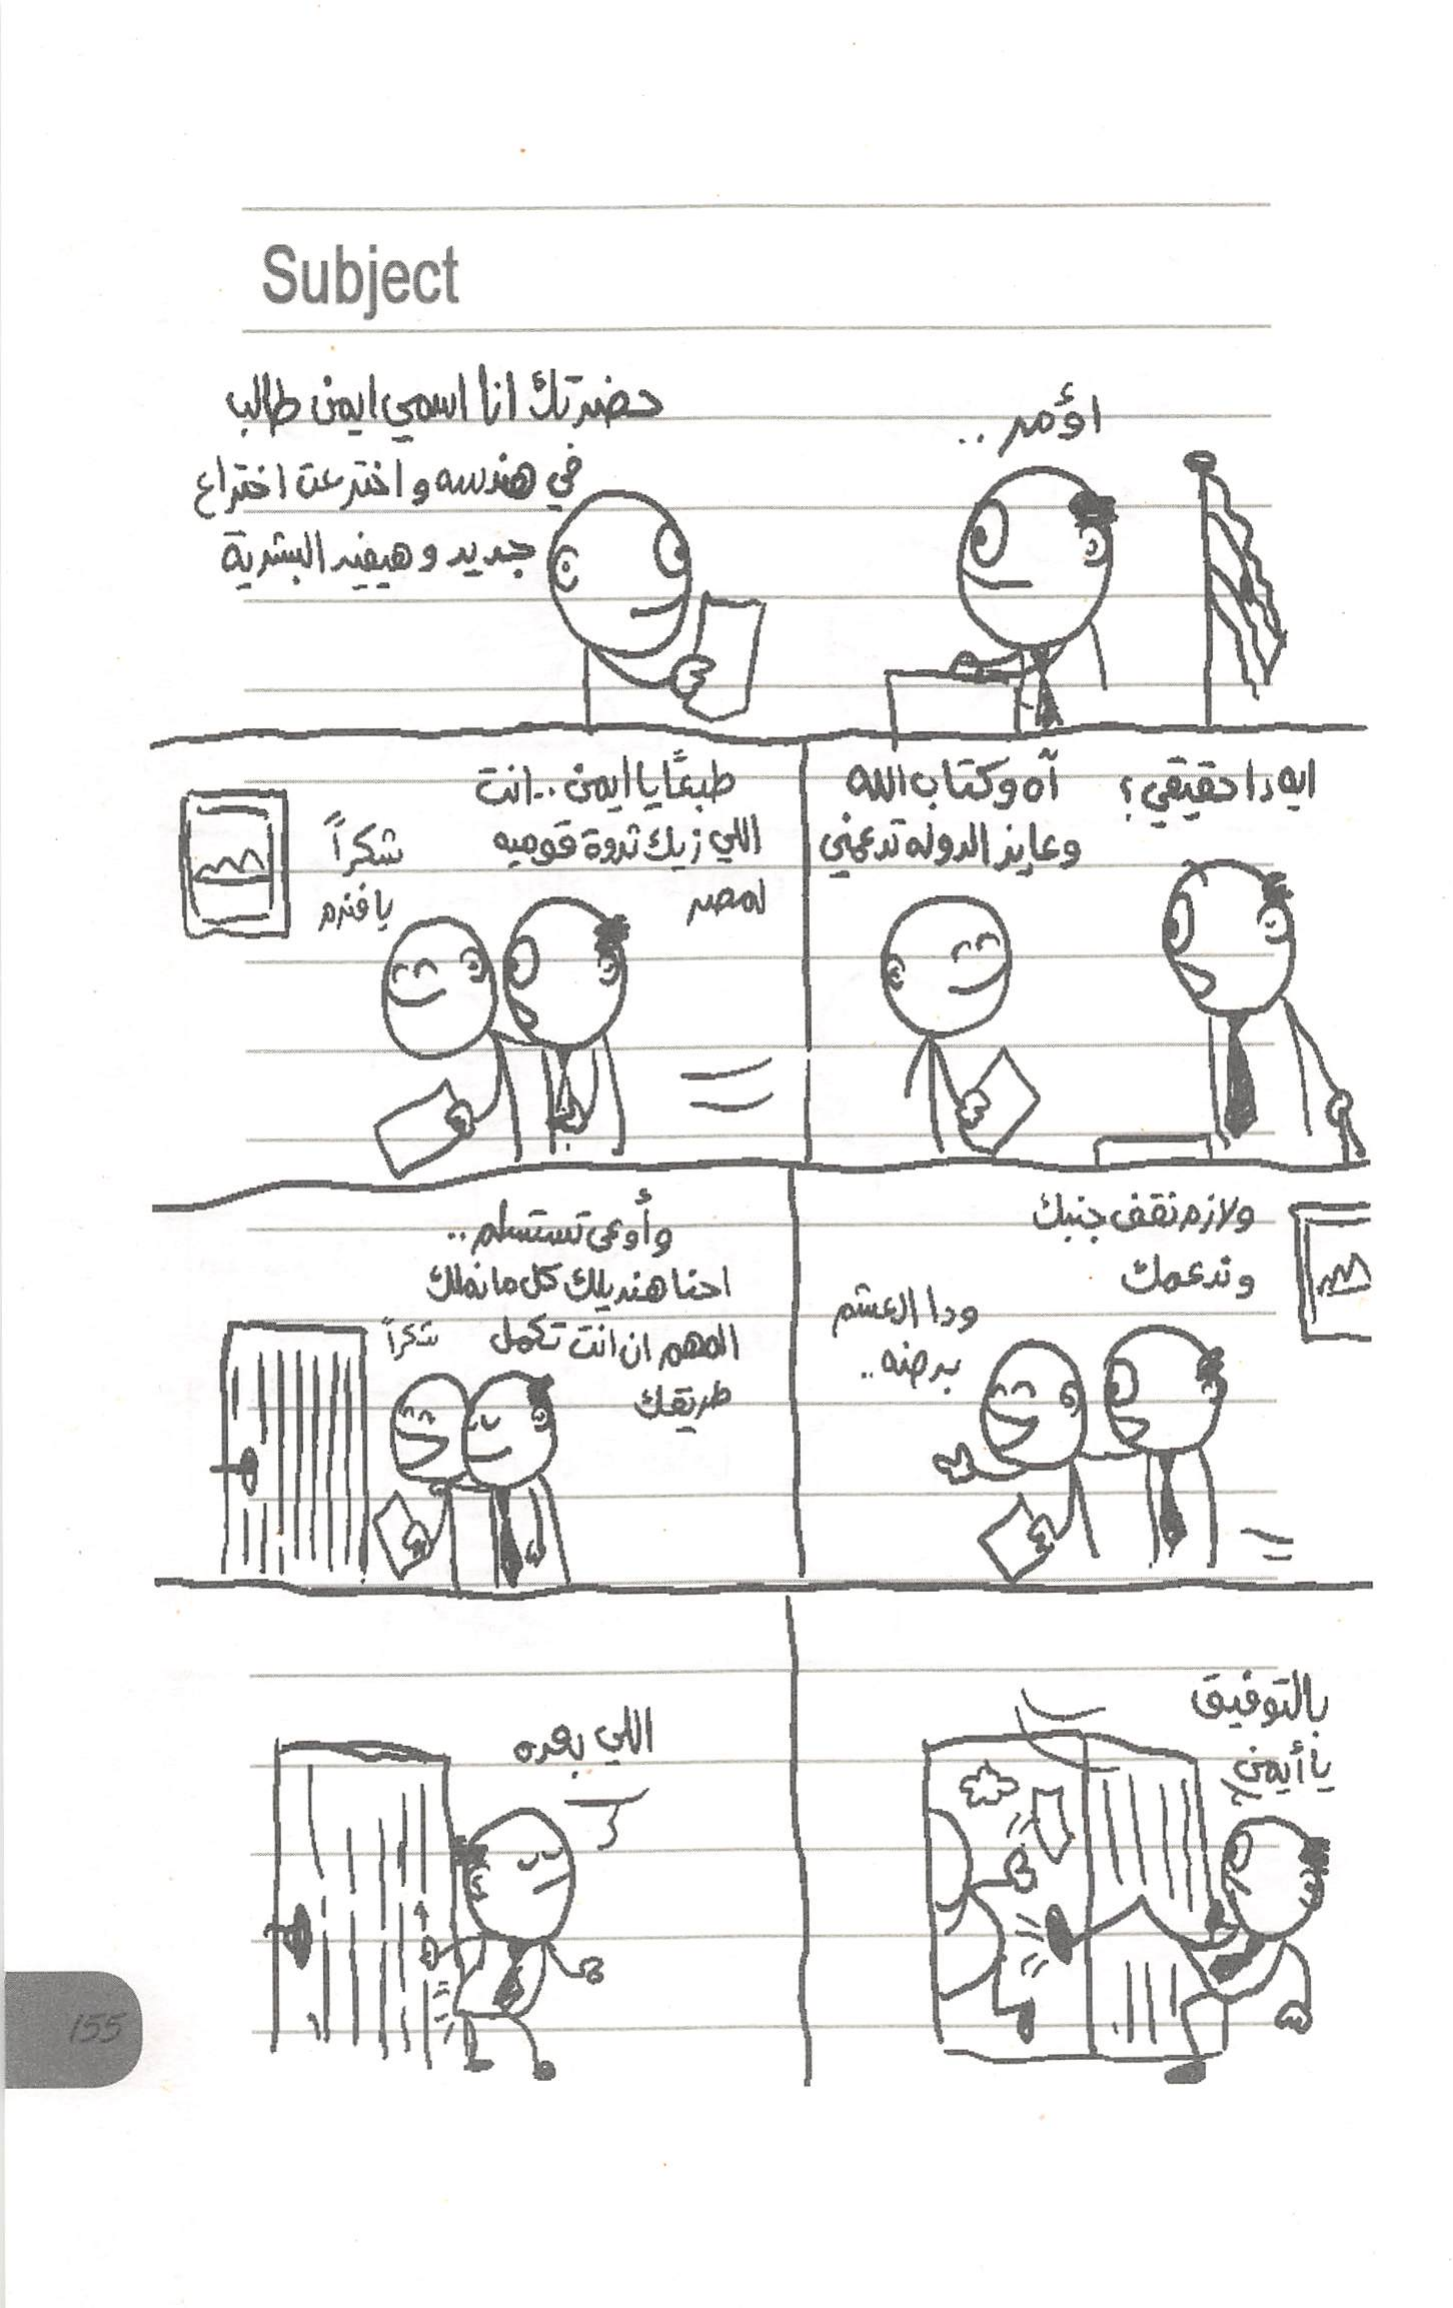 Subject
اؤمر..
حضرتك انا اسمي ايمن طالب
في هندسه و اخترعت اختراع
جديد و هيفيد البشرية
ايه دا حقيقي؟
آه وكتاب الله
وعايز الدوله تدعمني
طبعًا يا ايمن.. انت
اللي زيك ثروة قوميه
لمصر
شكراً
يا فندم
ولازم نقف جنبك
وندعمك
ودا العشم
برضه..
وأوعى تستسلم..
احنا هنديلك كل ما نملك
المهم ان انت تكمل
طريقك
شكراً
بالتوفيق
يا أيمن
اللي بعده
155